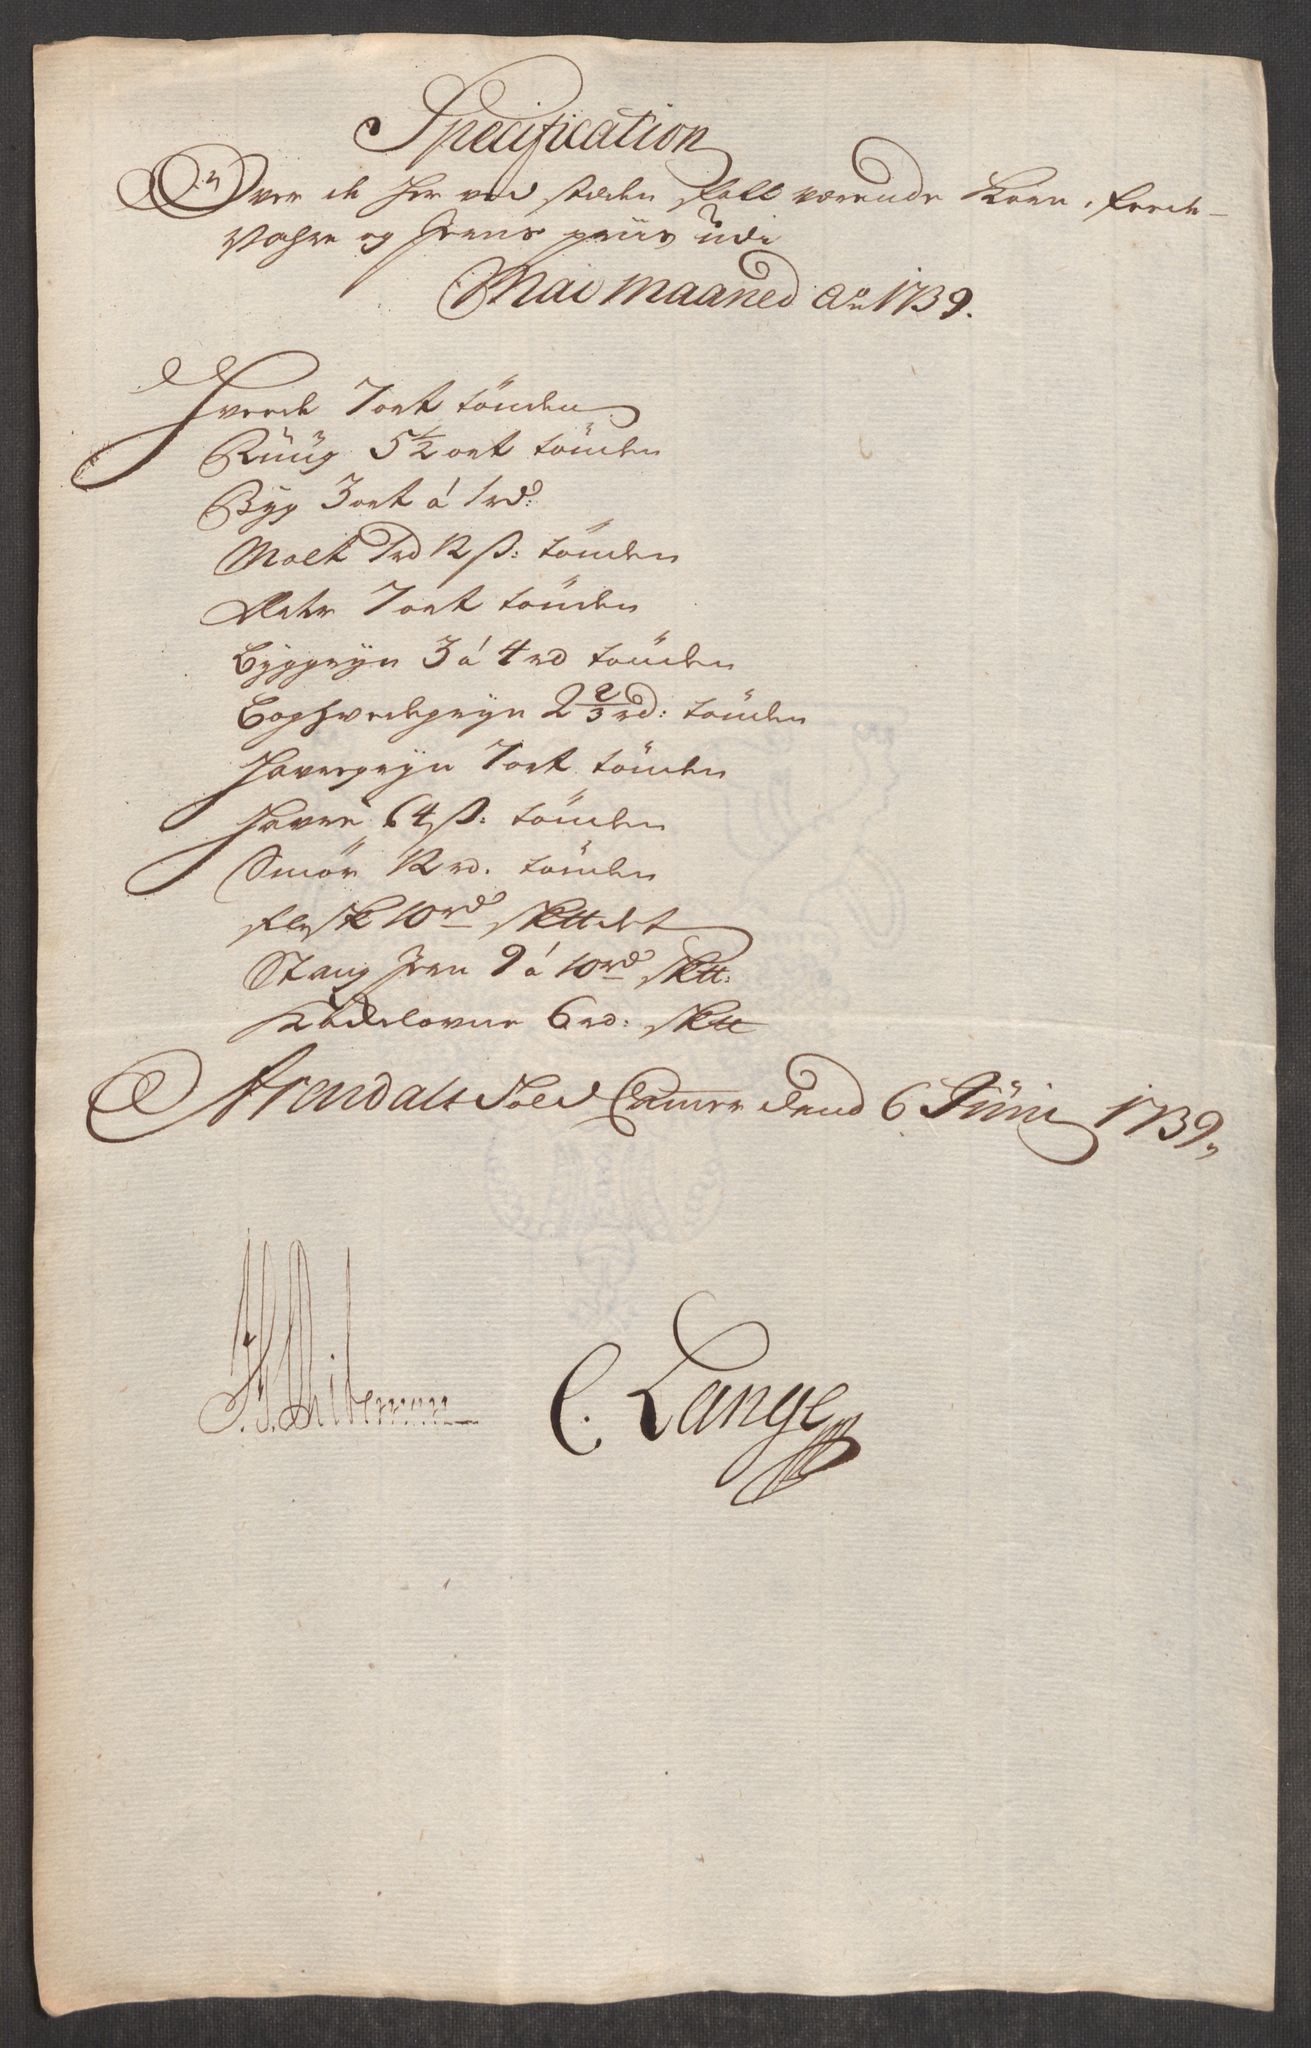 Specification
Over de her ved stæden fallt værende Korn, feede-
Vahre og Jerns priis udi
Mai Maaned Ao 1739.
Hveede 7 ort tönden
Rüüg 5½ ort tönden
Byg 3 ort á 1 rd:
Malt 1 rd 12 ß: tönden
Erter 7 ort tönden
Byggryn 3 á 4 rd tönden
Boghvedegryn 2 2/3 rd: tönden
Havregryn 7 ort tönden
Havre 64 ß: tönden
Smör 12 rd. tönden
flesk 10 rd skttdet
Stang Jern 9 á 10 rd sktt:
6 rd: sktt
Arendals Told Camer dend 6 Jüni 1739,
C. Lange